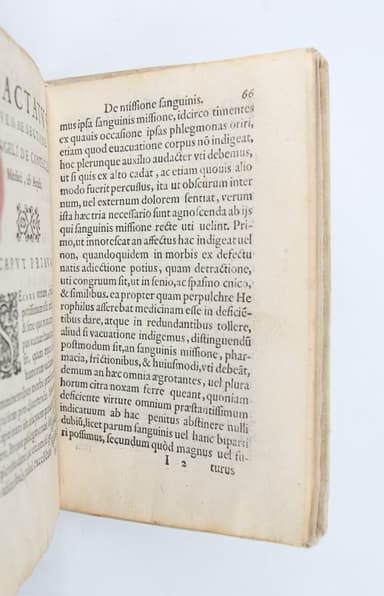 ACTATV
CAPVT PRIM
De missione sanguinis. 66
mus ipsa sanguinis missione, idcirco timentes
ex quauis occasione ipsas phlegmonas oriri,
etiam quod euacuatione corpus nō indigeat,
hoc plerunque auxilio audacter vti debemus,
ut si quis ex alto cadat, ac etiam quouis alio
modo fuerit percussus, ita ut obscurum inter
num, uel externum dolorem sentiat, verum
ista hæc tria necessario sunt agnoscenda ab ijs
qui sanguinis missione recte uti uelint. Pri-
mo, ut innotescat an affectus hac indigeat uel
non, quandoquidem in morbis ex defectu
natis adiectione potius, quam detractione,
uti congruum sit, ut in senio, ac spasmo cnico,
& similibus. ea propter quam perpulchre He
rophilus asserebat medicinam esse in deficiē-
tibus dare, atque in redundantibus tollere,
aliud si vacuatione indigemus, distinguendū
postmodum sit, an sanguinis missione, phar-
macia, frictionibus, & huiusmodi, vti debeāt,
demum an hæc omnia ægrotantes, uel plura
horum citra noxam ferre queant, quoniam
deficiente virtute omnium præstantissimum
indicatuum ab hac penitus abstinere nulli
dubiū, licet parum sanguinis uel hanc biparti
ri possimus, secundum quòd magnus uel fu-
I 2 turus